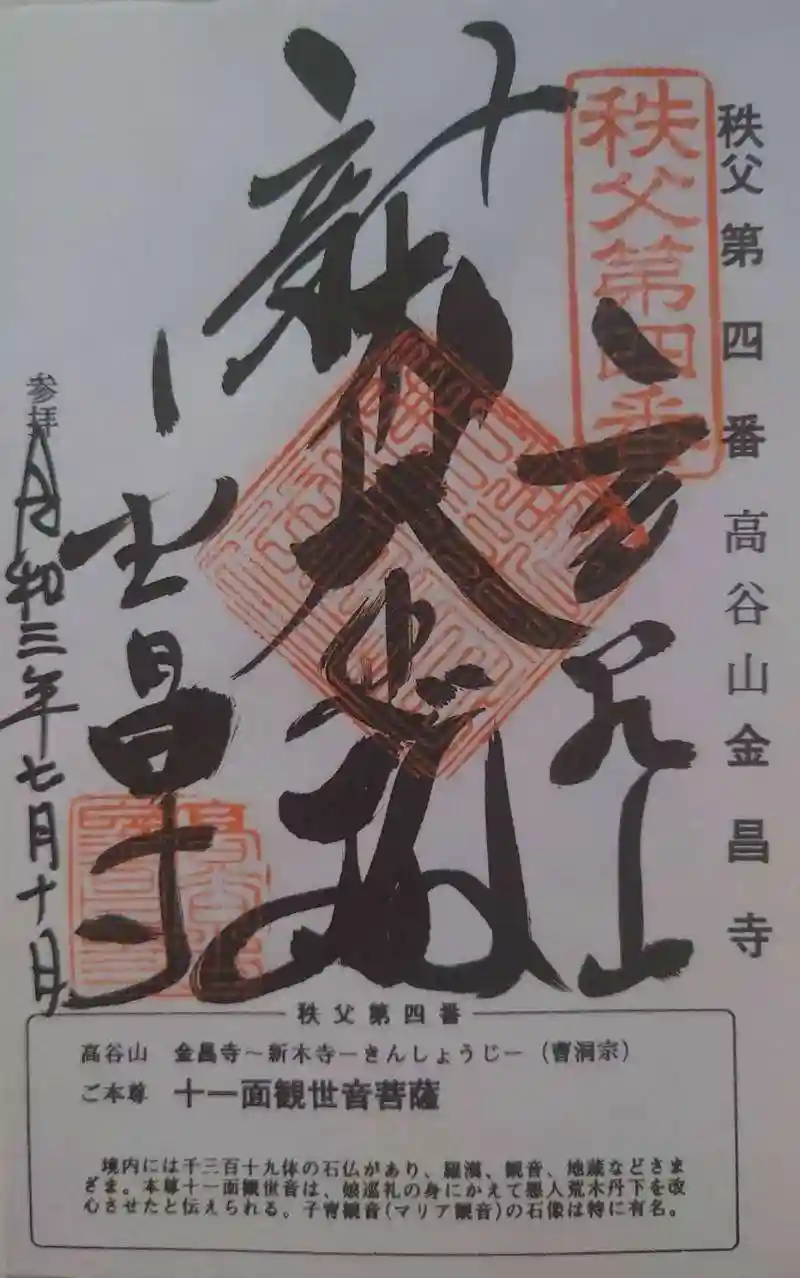 秩父第四番 高谷山金昌寺
秩父第四番
高谷山
金昌寺
参拝
令和三年七月十日
秩父第四番
高谷山 金昌寺〜新木寺ーきんしょうじー(曹洞宗)
ご本尊 十一面観世音菩薩
境内には千三百十九体の石仏があり、羅漢、観音、地蔵などさま
ざま。本尊十一面観世音は、娘巡礼の身にかえて悪人荒木丹下を改
心させたと伝えられる。子育観音(マリア観音)の石像は特に有名。